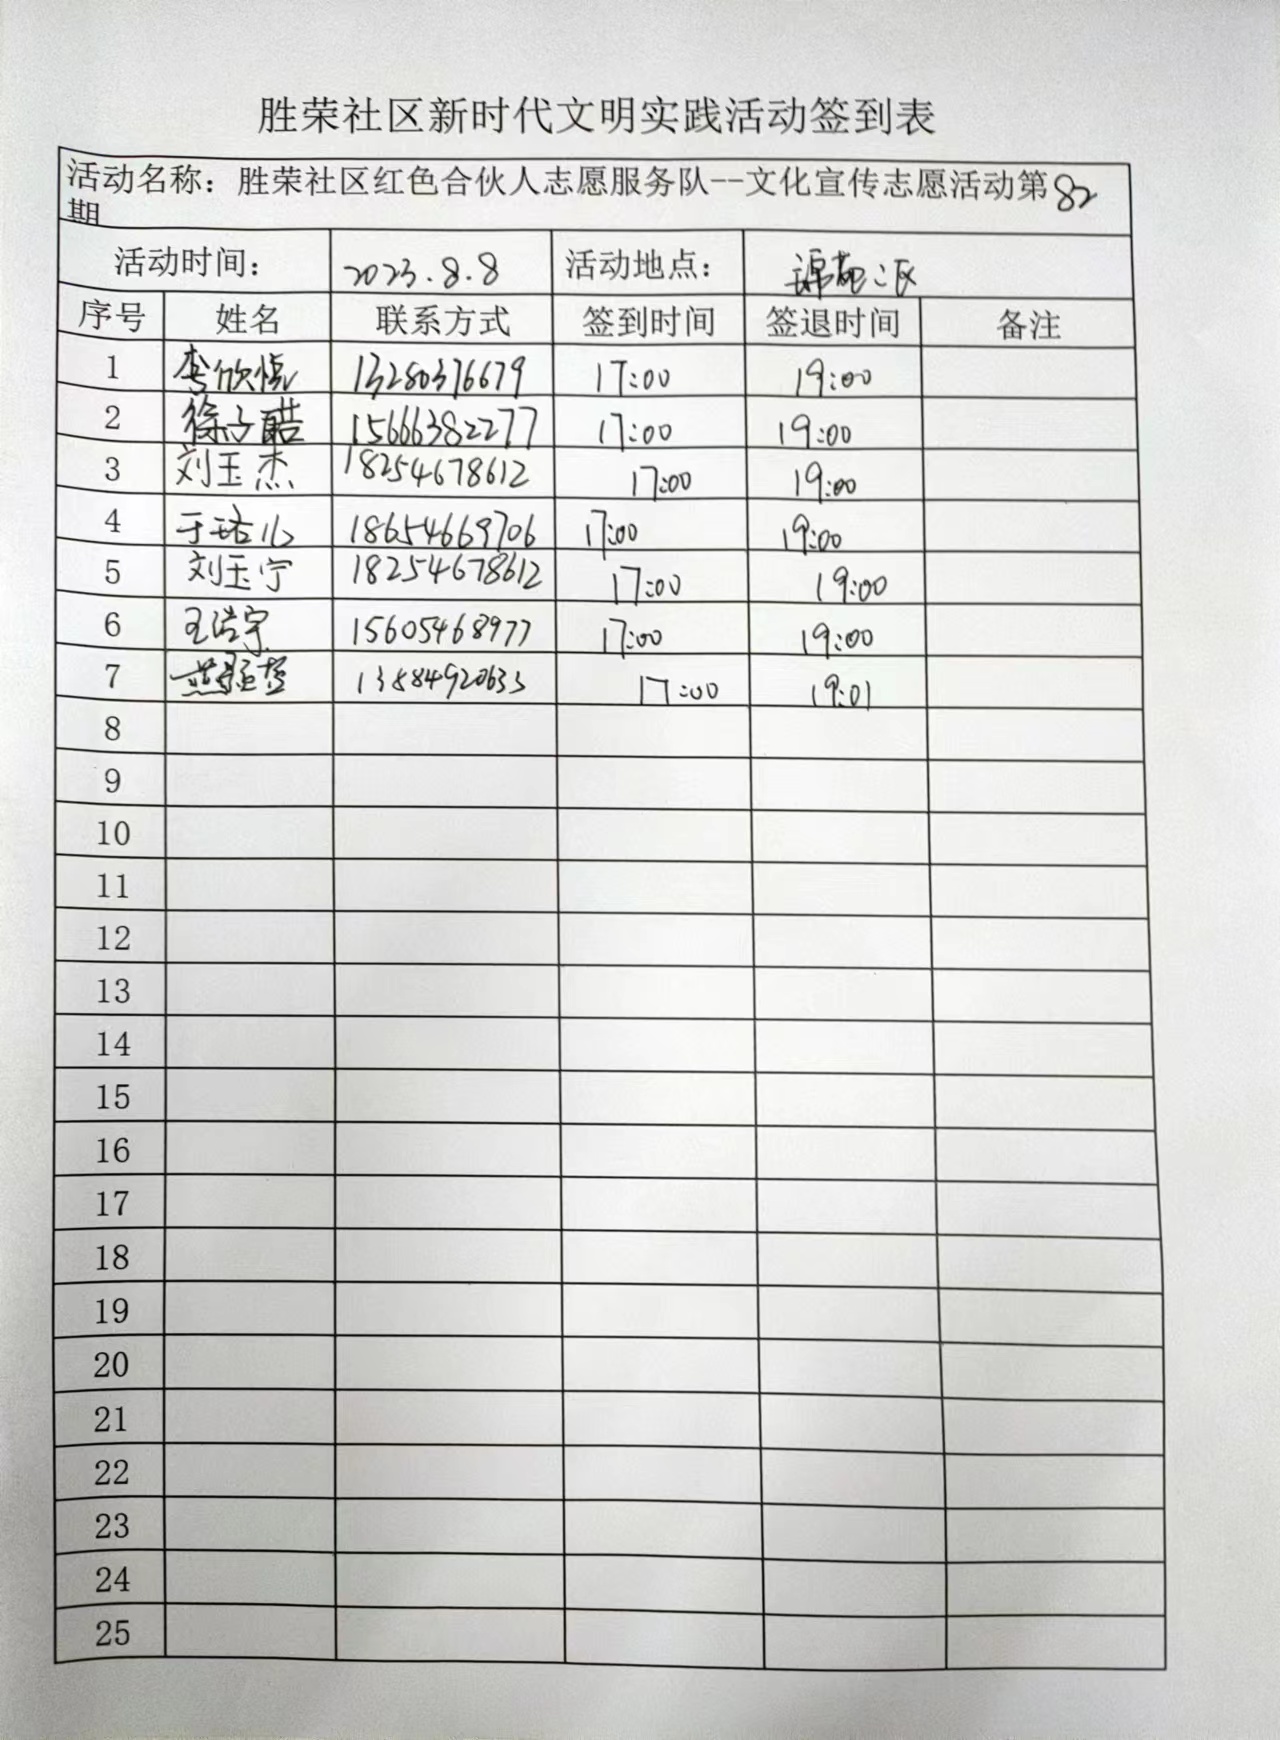 胜荣社区新时代文明实践活动签到表
活动名称：胜荣社区红色合伙人志愿服务队--文化宣传志愿活动第82
期
活动时间： 2023.8.8 活动地点： 锦苑二区
序号 姓名 联系方式 签到时间 签退时间 备注
1 李欣悦 13280376679 17:00 19:00
2 徐子皓 15666382277 17:00 19:00
3 刘玉杰 18254678612 17:00 19:00
4 于珞儿 18654669706 17:00 19:00
5 刘玉宁 18254678612 17:00 19:00
6 王浩宇 15605468977 17:00 19:00
7 13884920633 17:00 19:01
8
9
10
11
12
13
14
15
16
17
18
19
20
21
22
23
24
25